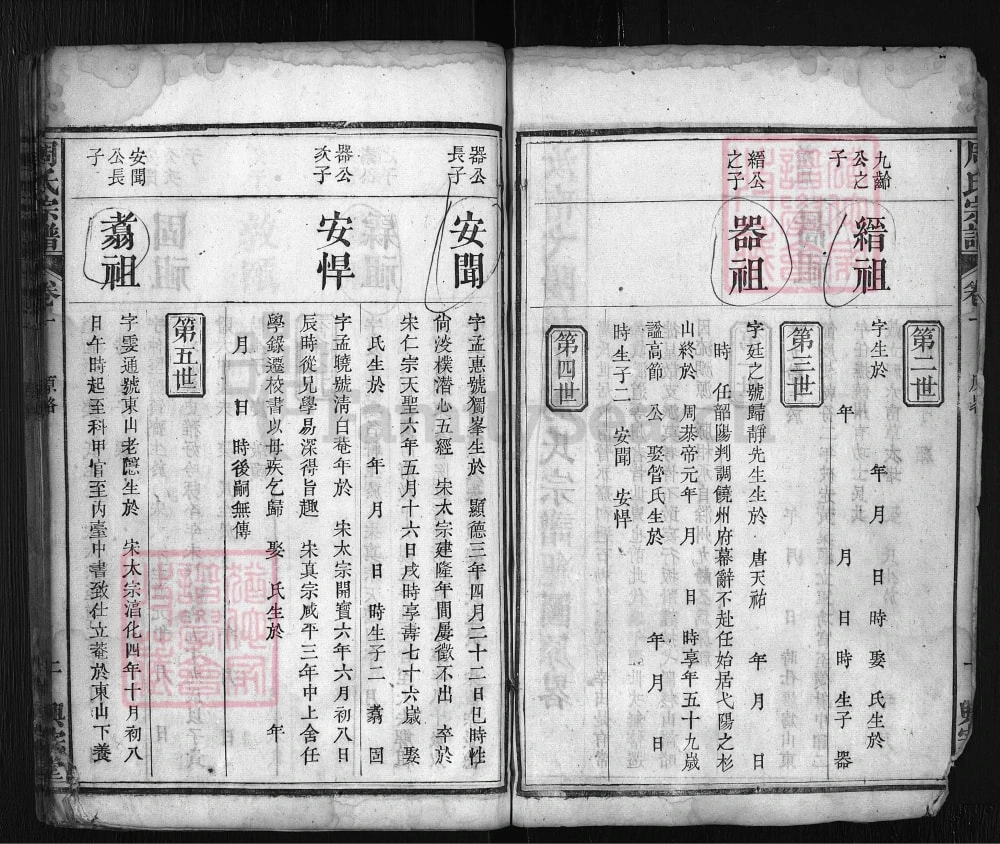 第二世
九齡
公之
子
縉祖
字生於　年　月　日時娶　氏生於
年　月　日　時生子器
第三世
縉公
之子
器祖
字廷之號歸靜先生生於　唐天祐　年　月　日
時　任韶陽判調饒州府幕辭不赴任始居弋陽之杉
山終於　周恭帝元年　月　日　時享年五十九歲
諡高節　公娶管氏生於　年　月　日
時生子二　安聞　安悍
第四世
器公
長子
安聞
字孟惠號獨峯生於　顯德三年四月二十二日巳時性
尚淡樸潛心五經　宋太宗建隆年間屢徵不出　卒於
宋仁宗天聖六年五月十六日戌時享壽七十六歲　娶
氏生於　年　月　日　時生子二　翥　固
器公
次子
安悍
字孟曉號清白菴年於　宋太宗開寶六年六月初八日
辰時從兄學易深得旨趣　宋真宗咸平三年中上舍任
學錄遷校書以母疾乞歸　娶　氏生於　年
月　日　時後嗣無傳
第五世
安聞
公長
子
翥祖
字雯通號東山老隱生於　宋太宗淳化四年十月初八
日午時起至科甲官至內臺中書致仕立菴於東山下養
周氏宗譜
卷一